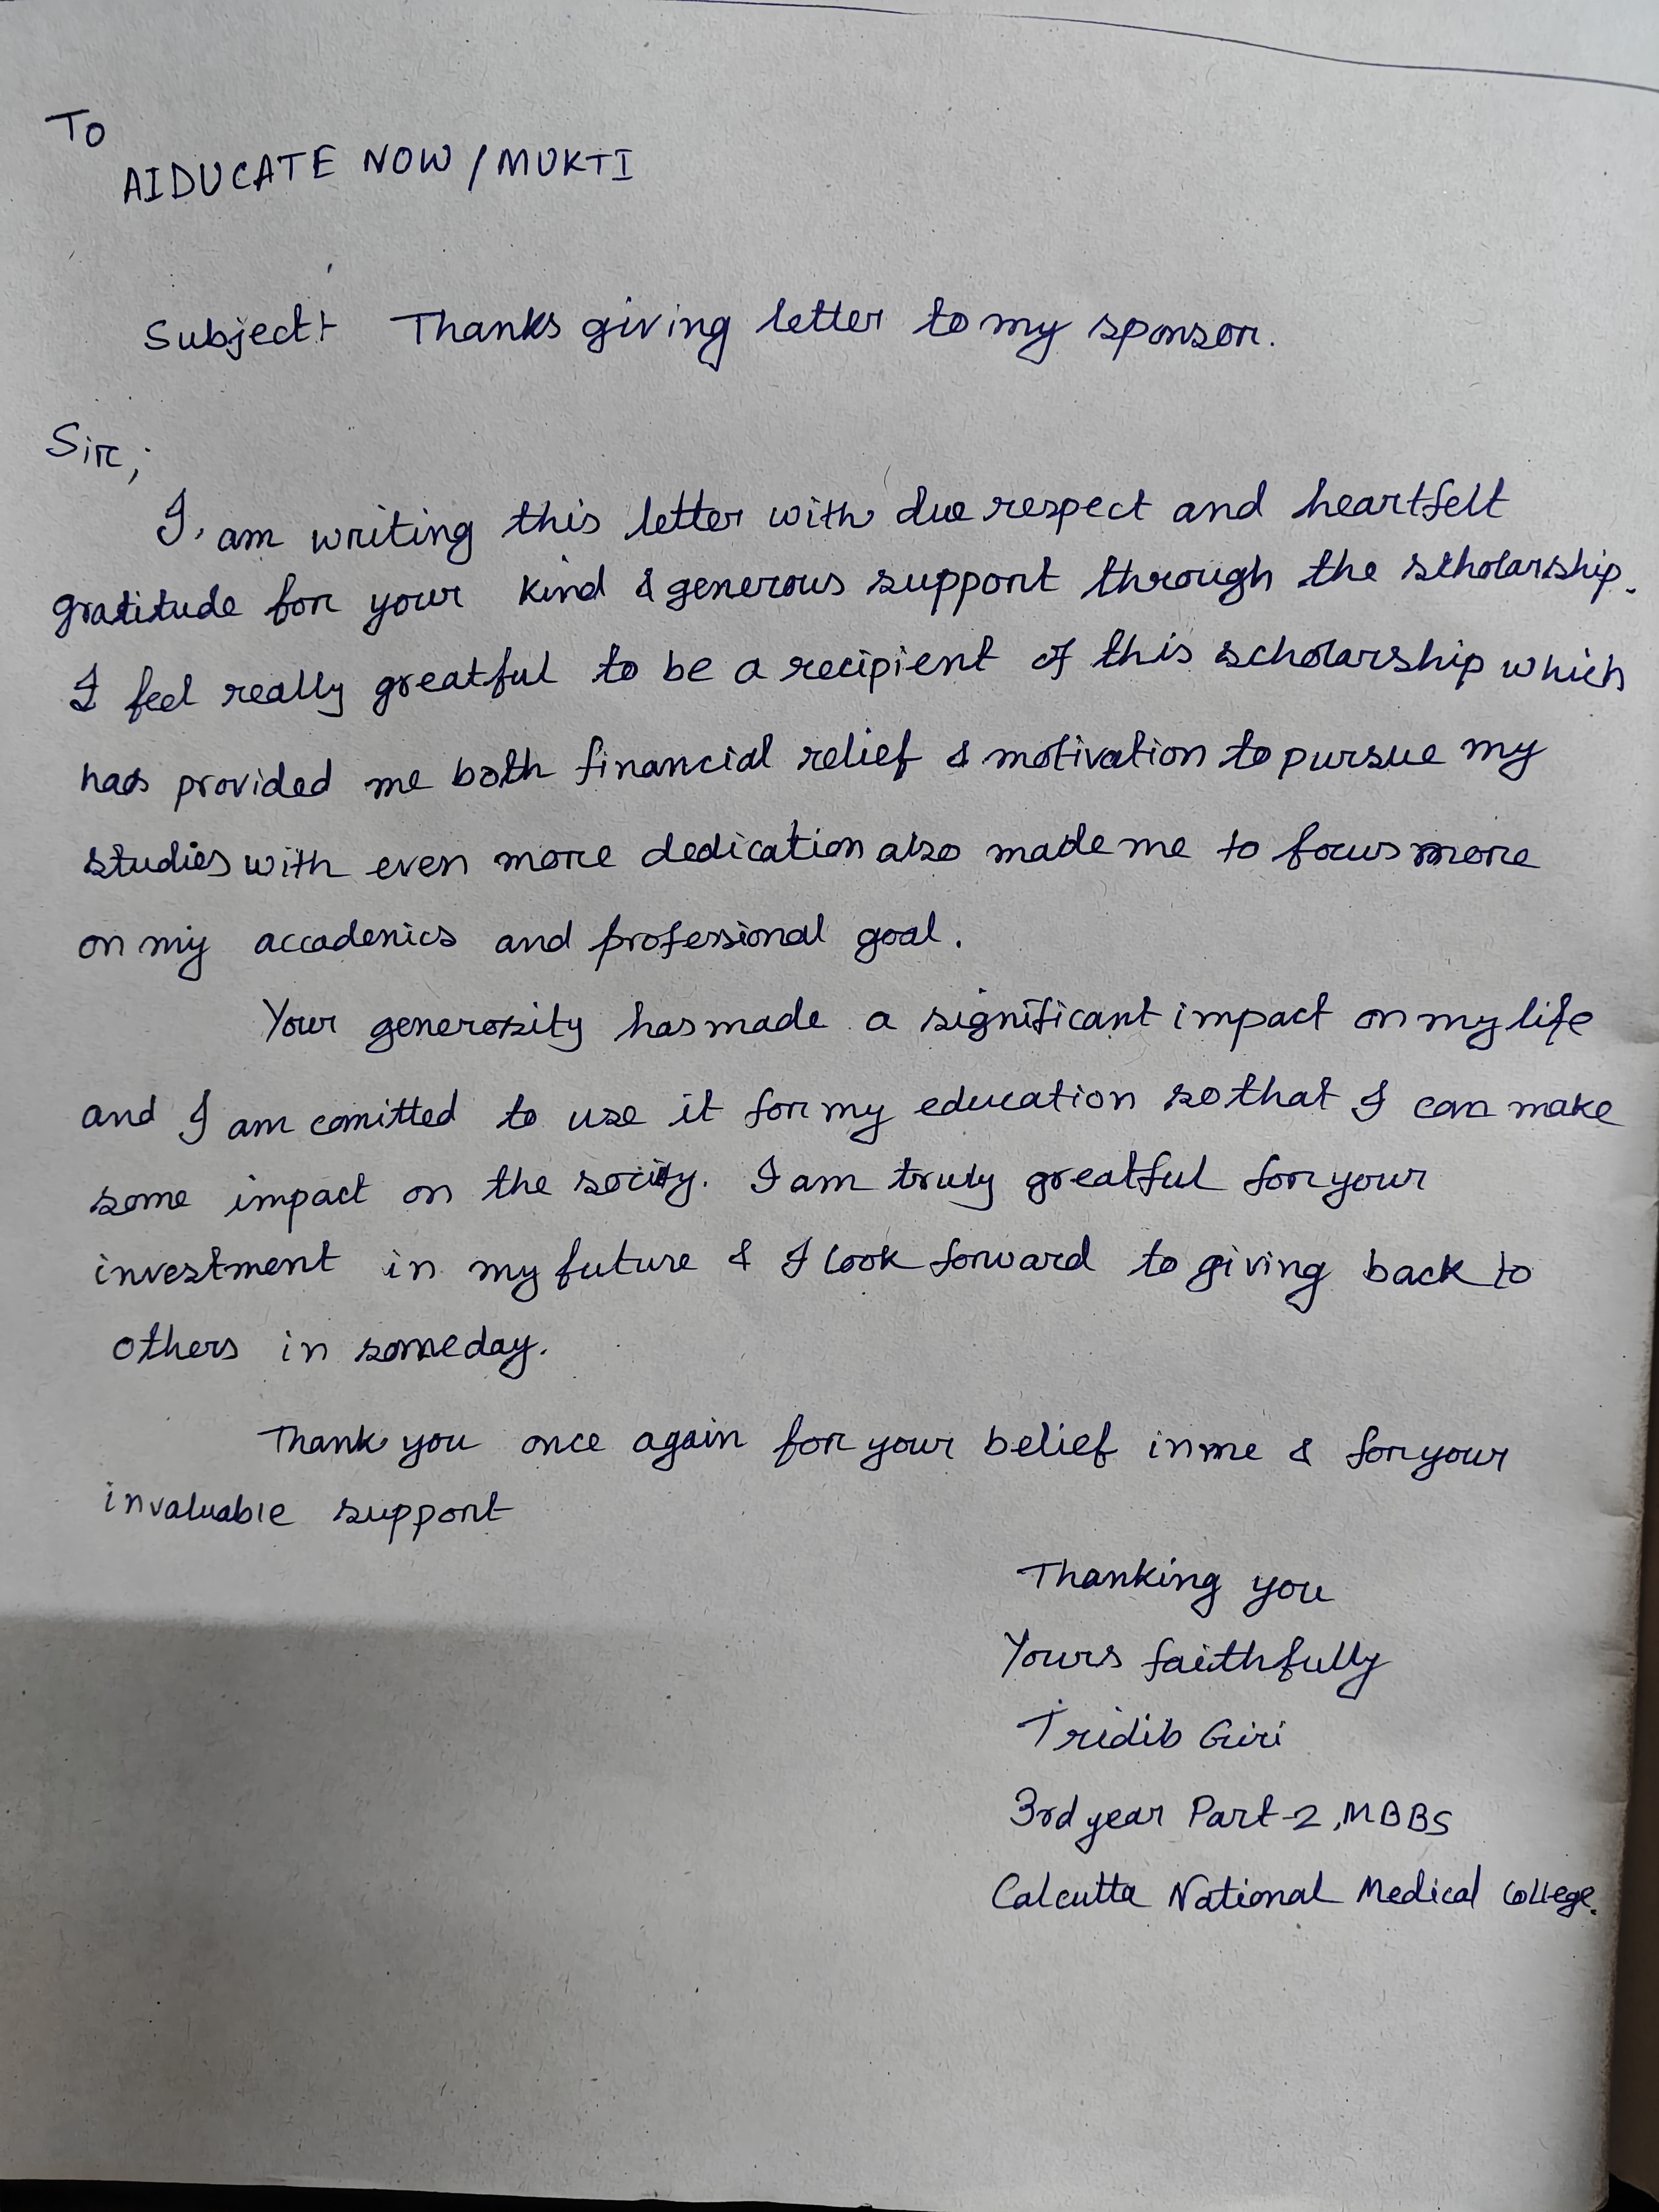 To
AIDUCATE NOW / MUKTI
Subject:- Thanks giving letter to my sponsor.
Sir,
I am writing this letter with due respect and heartfelt
gratitude for your kind & generous support through the scholarship.
I feel really greatful to be a recipient of this scholarship which
has provided me both financial relief & motivation to pursue my
studies with even more dedication also made me to focus more
on my accademics and professional goal.
Your generosity has made a significant impact on my life
and I am comitted to use it for my education so that I can make
some impact on the socity. I am truly greatful for your
investment in my future & I look forward to giving back to
others in someday.
Thank you once again for your belief in me & for your
invaluable support
Thanking you
Yours faithfully
Tridib Giri
3rd year Part-2, MBBS
Calcutta National Medical College.